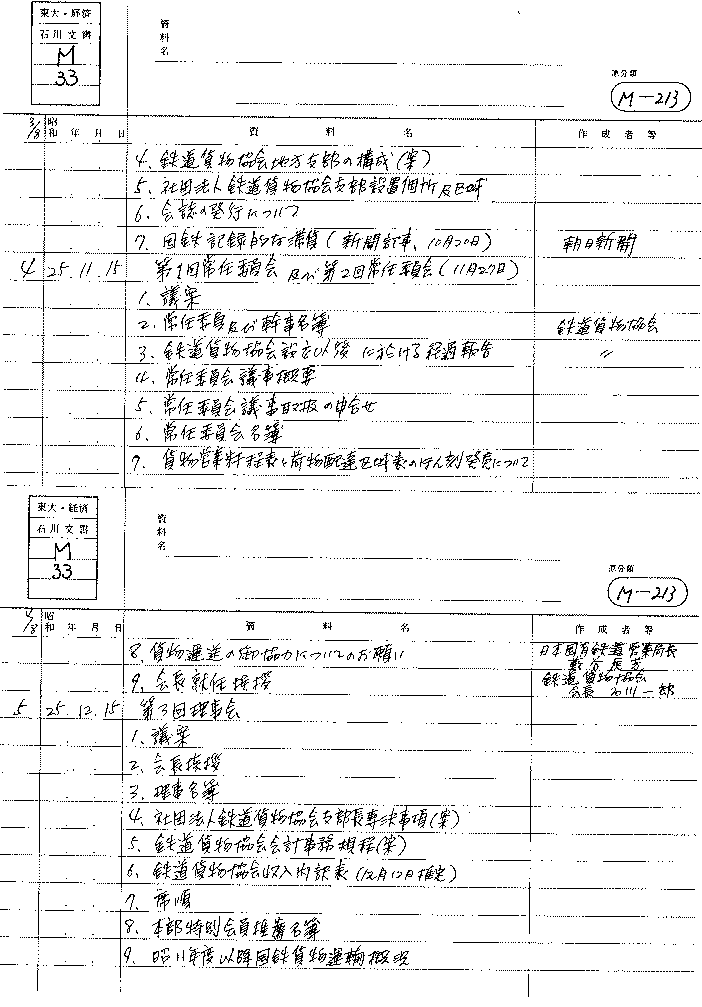 東大・経済
石川文書
M
33
資料名
原分類
M-213
3/8 昭和 年 月 日 資 料 名 作成者等
4. 鉄道貨物協会地方支部の構成(案)
5. 社団法人鉄道貨物協会支部設置個所及区域
6. 会誌の発行について
7. 国鉄記録的な滞貨(新聞記事、10月20日) 朝日新聞
4 25.11.15 第1回常任委員会 及び第2回常任委員会(11月27日)
1. 議案
2. 常任委員及び幹事名簿 鉄道貨物協会
3. 鉄道貨物協会設立以後に於ける経過報告 〃
4. 常任委員会議事概要
5. 常任委員会議事取扱の申合せ
6. 常任委員会名簿
7. 貨物営業粁程表と荷物配達区域表のほん刻発売について
東大・経済
石川文書
M
33
資料名
原分類
M-213
4/8 昭和 年 月 日 資 料 名 作成者等
8. 貨物運送の御協力についてのお願い 日本国有鉄道営業局長
9. 会長就任挨拶 鉄道貨物協会
会長 石川一郎
5 25.12.15 第3回理事会
1. 議案
2. 会長挨拶
3. 理事名簿
4. 社団法人鉄道貨物協会支部長専決事項(案)
5. 鉄道貨物協会会計事務規程(案)
6. 鉄道貨物協会収入内訳表(12月12日推定)
7. 席順
8. 本部特別会員推薦名簿
9. 昭11年度以降国鉄貨物運輸概況